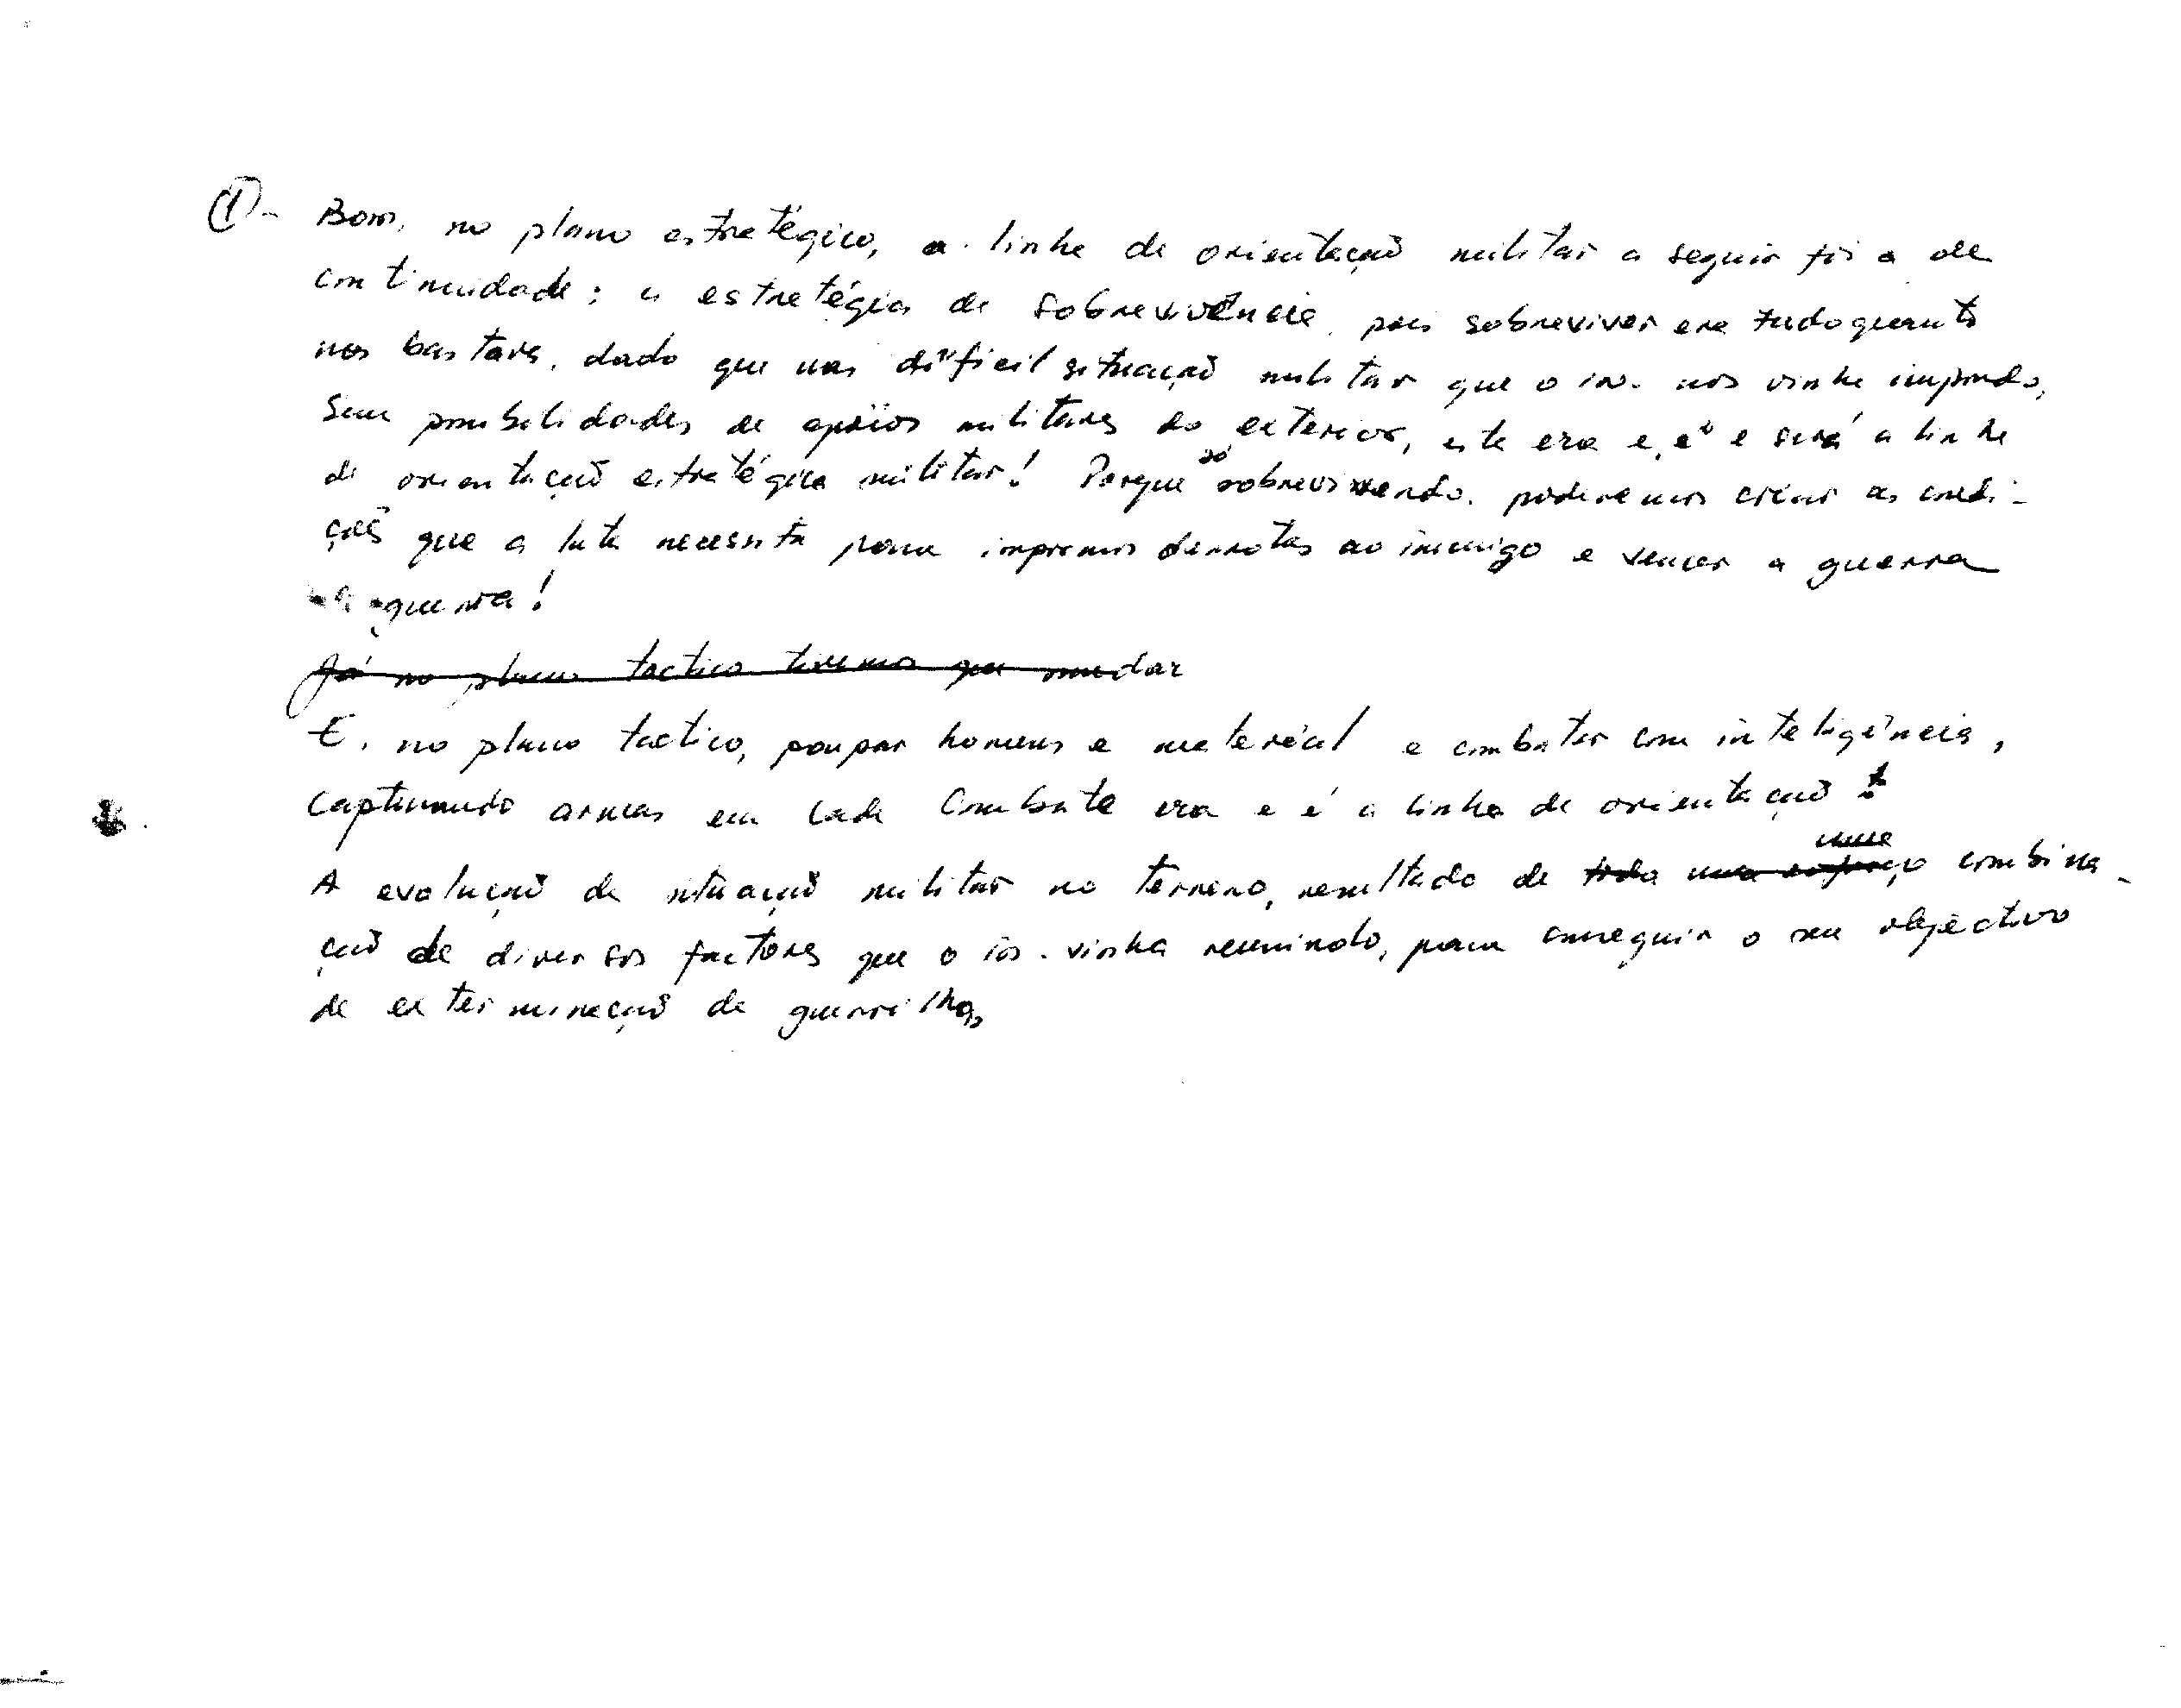 ①- Bom, no plano estratégico, a linha de orientação militar a seguir foi a de
continuidade: a estratégia de sobrevivência, pois sobreviver era tudo quanto
nos bastava, dado que nas difícil situação militar que o in. nos vinha impondo,
sem possibilidades de apoios militares do exterior, este era e, é e será a linha
de orientação estratégica militar! Porque só sobrevivendo, poderemos criar as condi-
ções que a luta necessita para impormos derrotas ao inimigo e vencer a guerra
guerra!
Já no plano tactico tivemos que mudar
E, no plano tactico, poupar homens e material e combater com inteligência,
capturando armas em cada combate era e é a linha de orientação!
A evolução da situação militar no terreno, resultado de toda uma esforço uma combina-
ção de diversos factores que o in. vinha reunindo, para conseguir o seu objectivo
de exterminação da guerrilha,